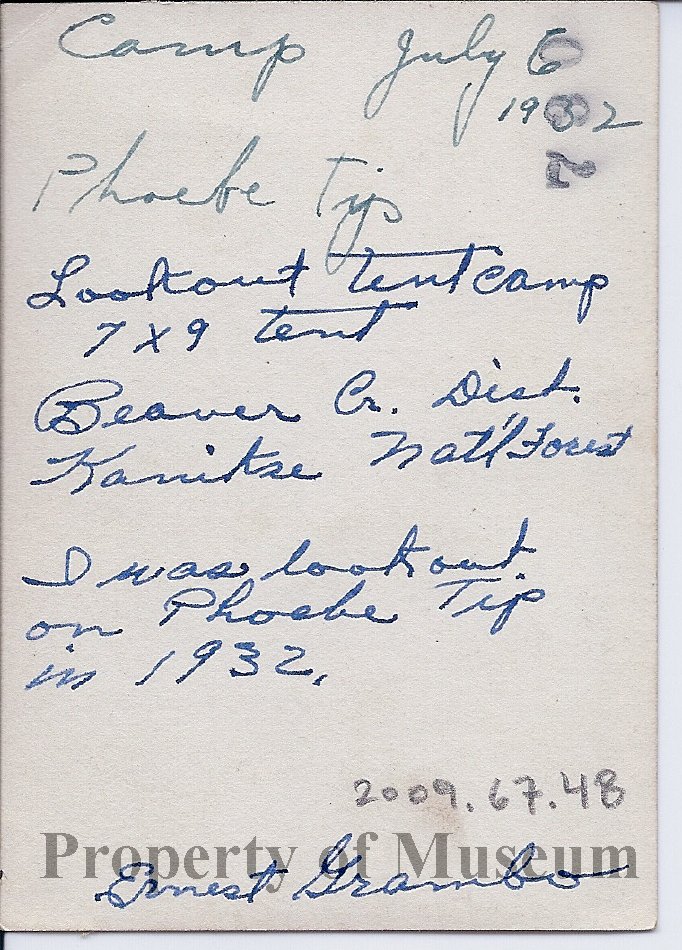 Camp July 6
1932
082
Phoebe Tip
Lookout tent camp
7 x 9 tent
Beaver Cr. Dist.
Kanitse Nat'l Forest
I was lookout
on Phoebe Tip
in 1932.
2009.67.48
Property of Museum
Ernest Grambo